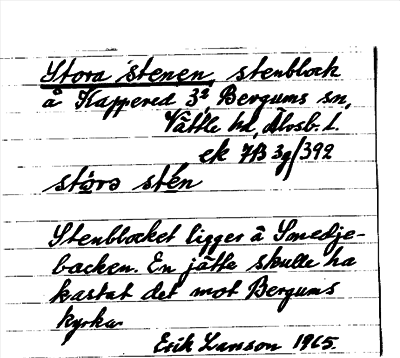 Stora stenen, stenblock
å Kappered 3², Bergums sn,
Vättle hd, Älvsb. l.
ek 7B 3g/392
stora stén
Stenblocket ligger å Smedje-
backen. En jätte skulle ha
kastat det mot Bergums
kyrka.
Erik Larsson 1965.